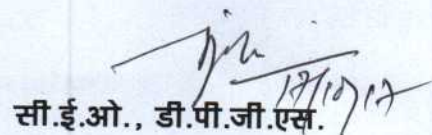 17/10/17
सी.ई.ओ., डी.पी.जी.एस.